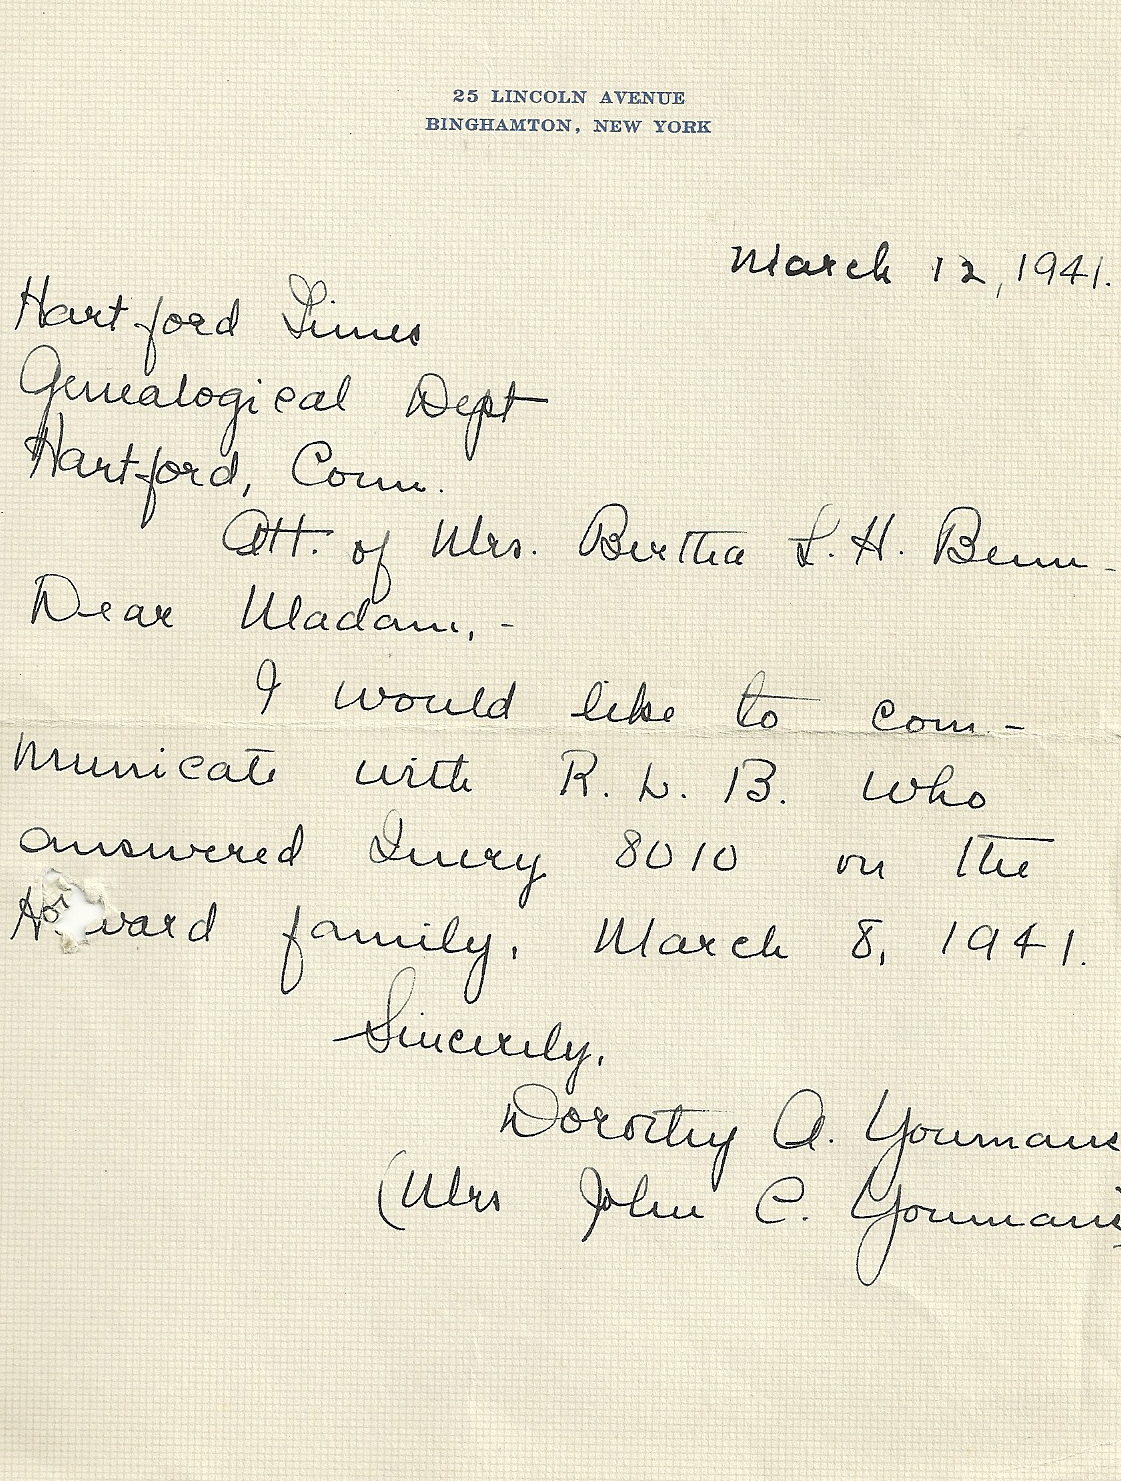 25 LINCOLN AVENUE
BINGHAMTON, NEW YORK
March 12, 1941.
Hartford Times
Genealogical Dept
Hartford, Conn.
Att. of Mrs. Bertha L. H. Benn-
Dear Madam,-
I would like to com-
municate with R. L. B. who
answered Query 8010 on the
family, March 8, 1941.
Sincerely,
Dorothy A. Youmans
(Mrs John C. Youmans